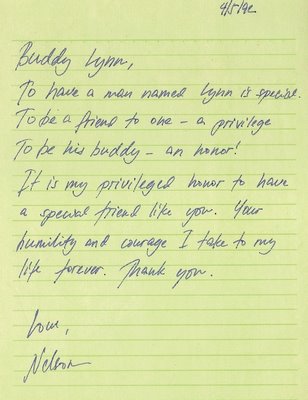 4/5/92
Buddy Lynn,
To have a man named Lynn is special.
To be a friend to one - a privilege
To be his buddy - an honor!
It is my privileged honor to have
a special friend like you. Your
humility and courage I take to my
life forever. Thank you.
Love,
Nelson